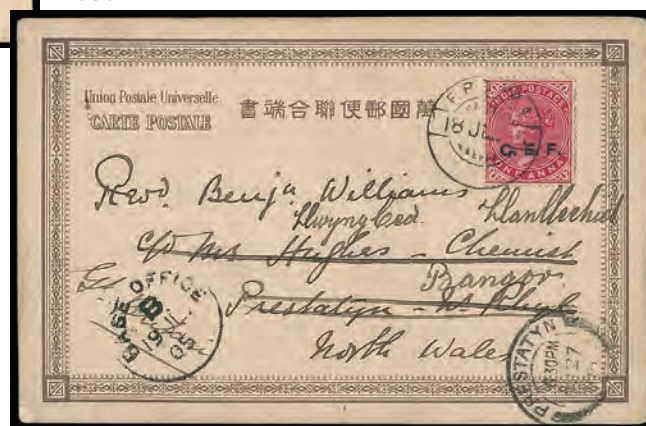 Union Postale Universelle.
CARTE POSTALE
書端合聯便郵國萬
F.P.O.
18 JU
INDIA POSTAGE
C.E.F.
ONE ANNA
Revd. Benja. Williams
Llanllechid
c/o Mr Hughes - Chemist
Bangor
Prestatyn - Nr. Rhyl
North Wales
BASE OFFICE
B
PRESTATYN
30PM
27